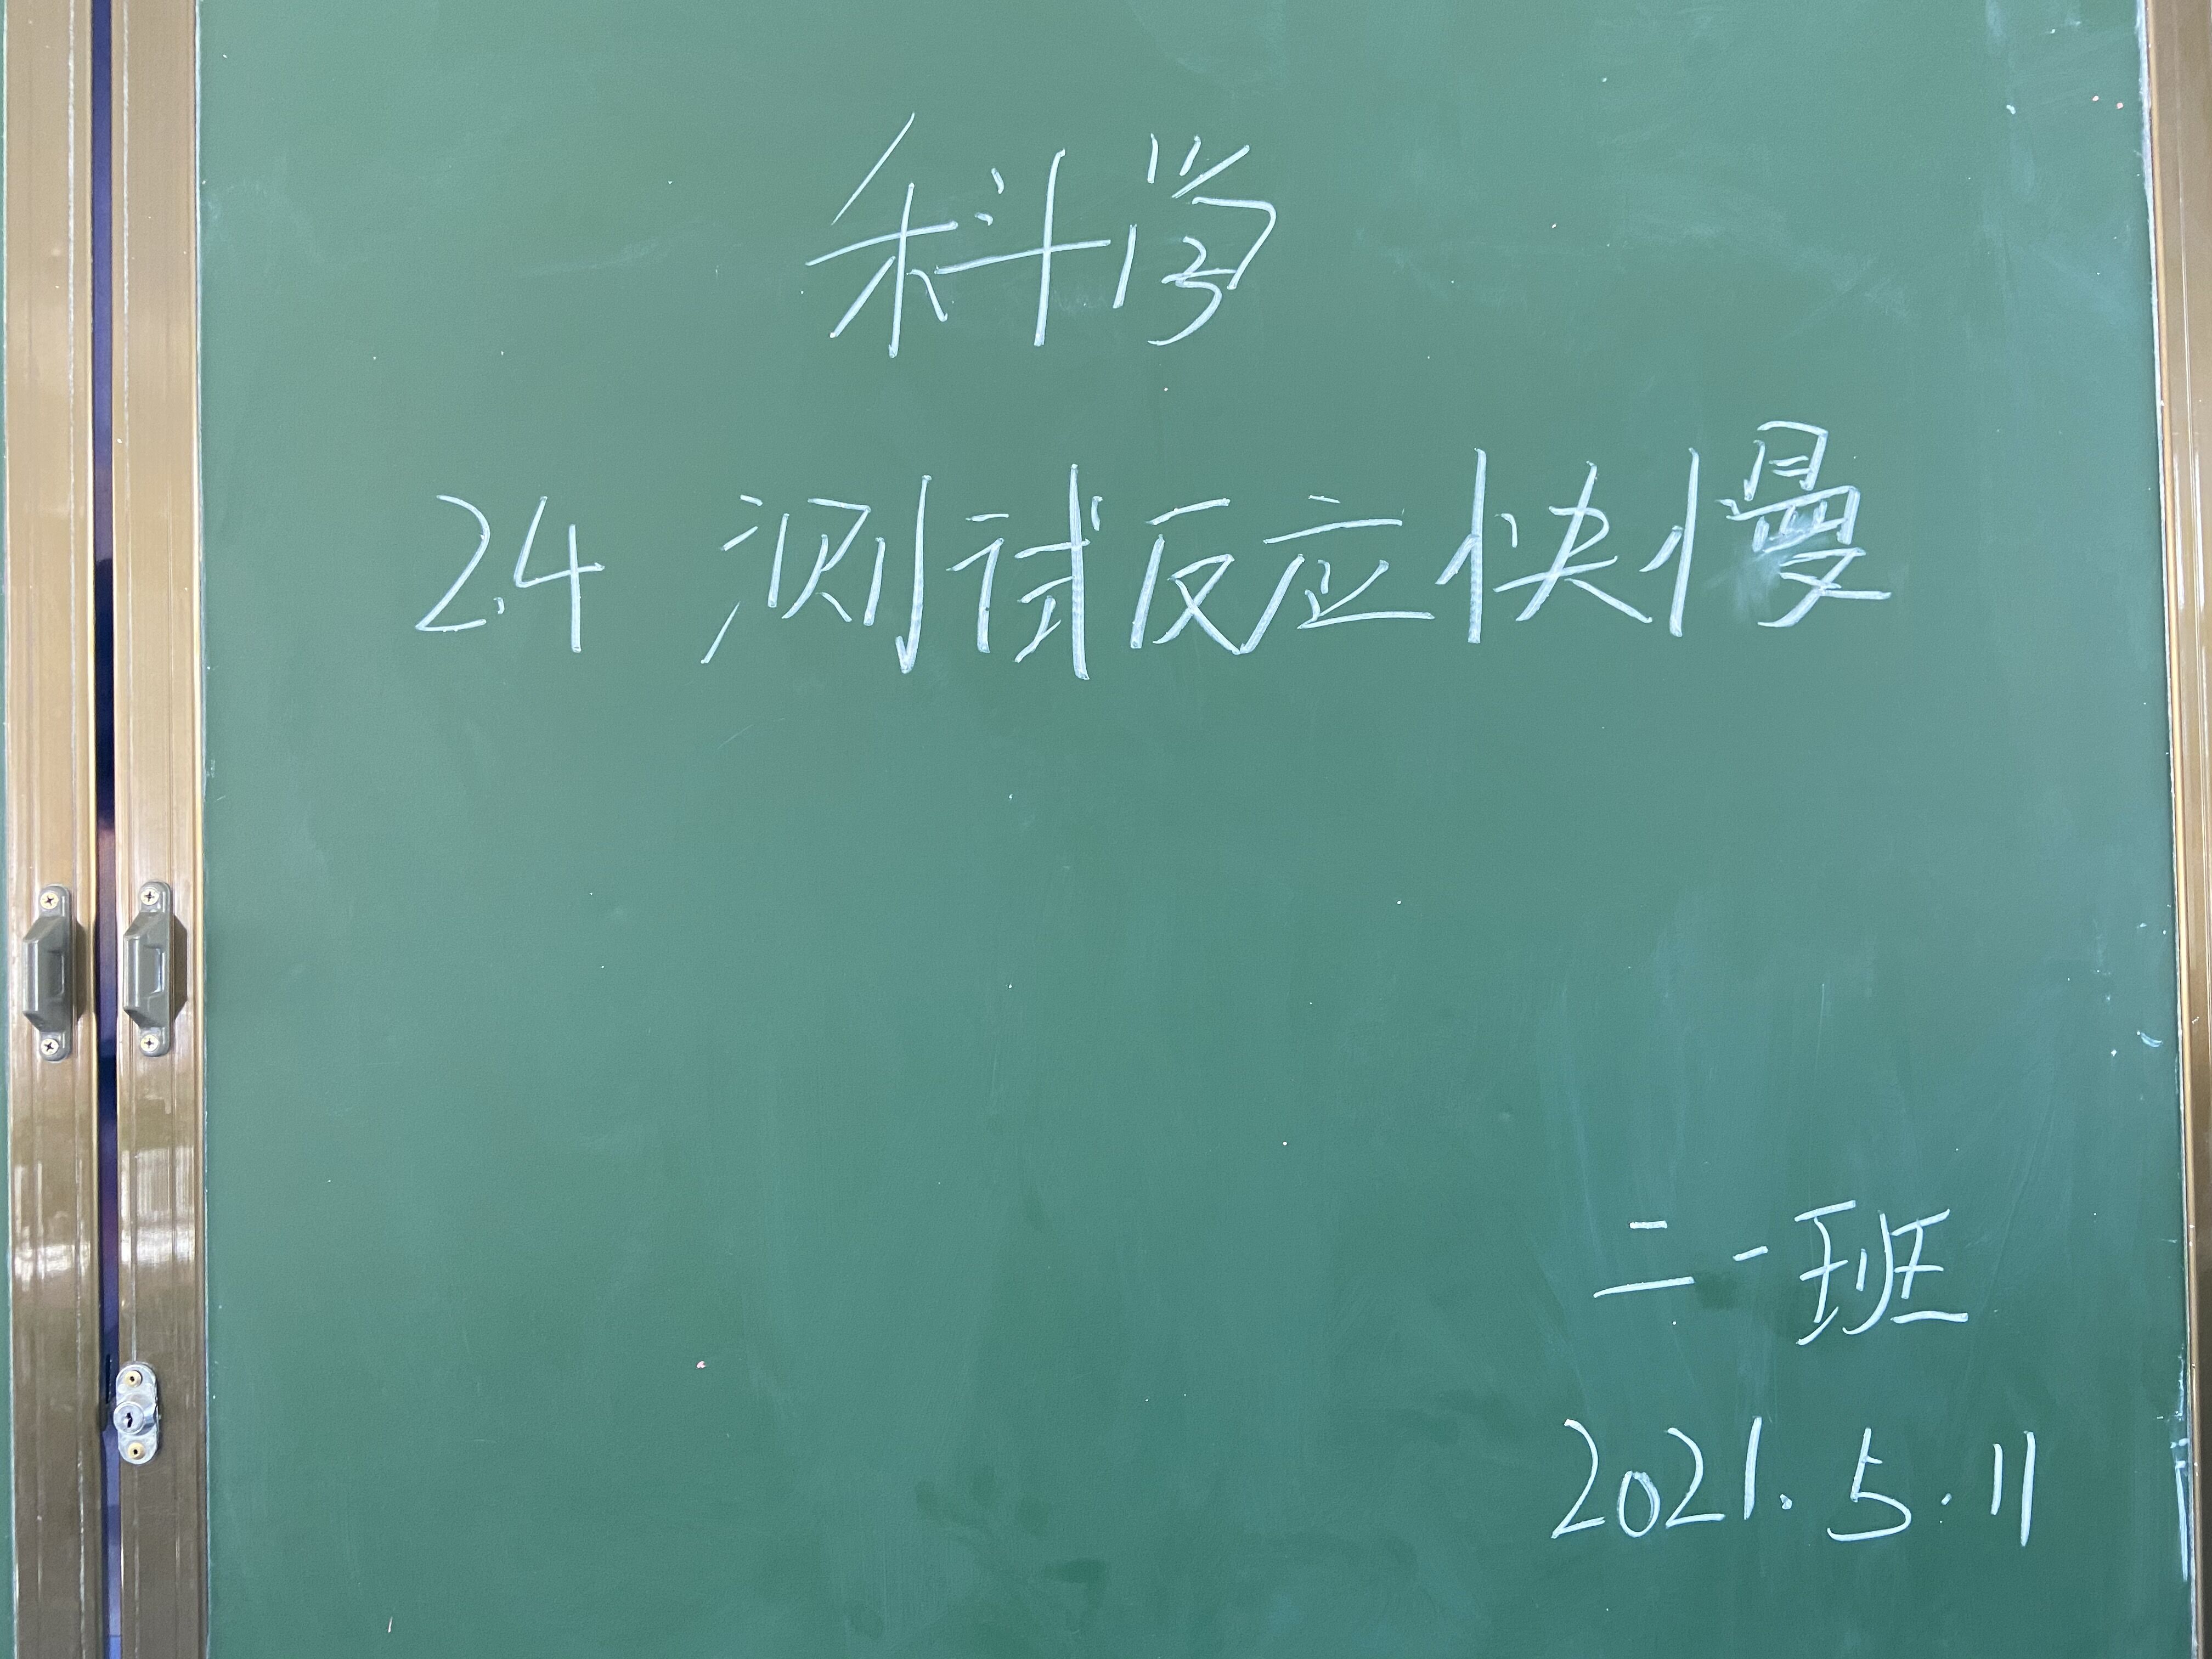 科学
2.4 测试反应快慢
二一班
2021.5.11